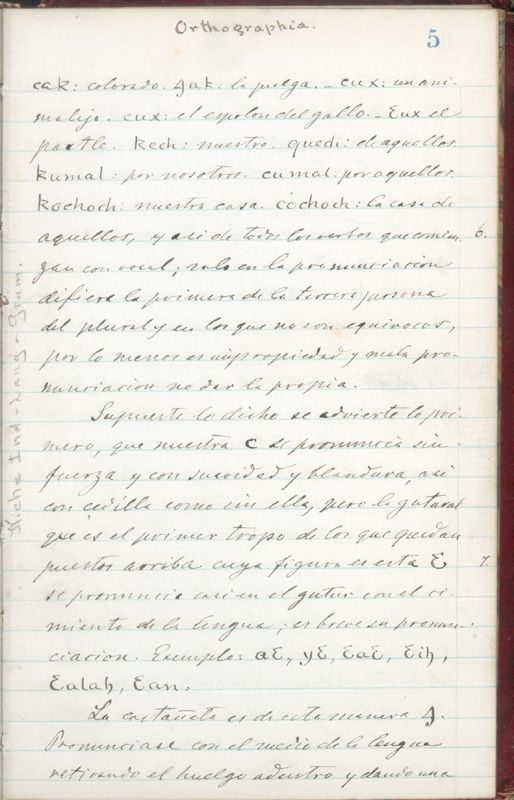 Orthographia.
5
cak: colorado. 4ak: la pulga. _ cux: un ani-
malejo. cux: el espolon del gallo. _ Ɛux el
paxtle. kech: nuestro. quech: de aquellos.
kumal: por nosotros. cumal: por aquellos.
kochoch: nuestra casa. cochoch: la casa de
aquellos, y asi de todos los verbos que comien- 6.
zan con vocal; solo en la pronunciacion
difiere la primera de la tercera persona
del plural y en los que no son equivocos,
por lo menos es impropiedad y mala pro-
nunciacion no dar la propia.
Supuesto lo dicho se advierte lo pri-
mero, que nuestra c se pronuncia sin
fuerza y con suavidad y blandura, asi
con cedilla como sin ella, pero la gutural
que es el primer tropo de los que quedan
puestos arriba cuya figura es esta Ɛ 7.
se pronuncia casi en el gutur con el ci-
miento de la lengua; es breve su pronun-
ciacion. Exemplo: aƐ, yƐ, ƐaƐ, Ɛih,
Ɛalah, Ɛan.
La castañeta es de esta manera 4.
Pronunciase con el medio de la lengua
retirando el huelgo adentro y dando una
Kiche Ind-Lang-Gram.